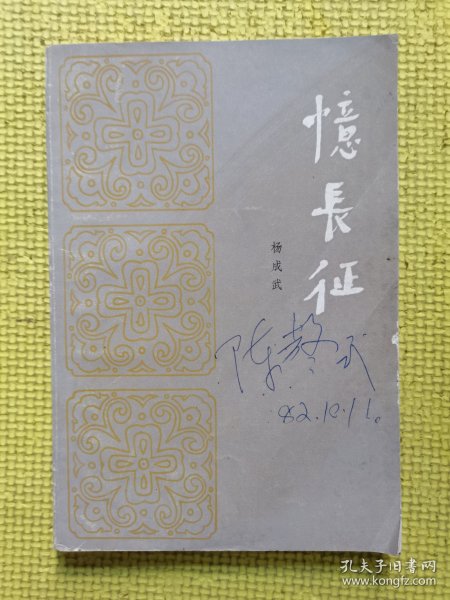 憶長征
杨成武
82.10.11。
孔夫子旧书网
www.kongfz.com